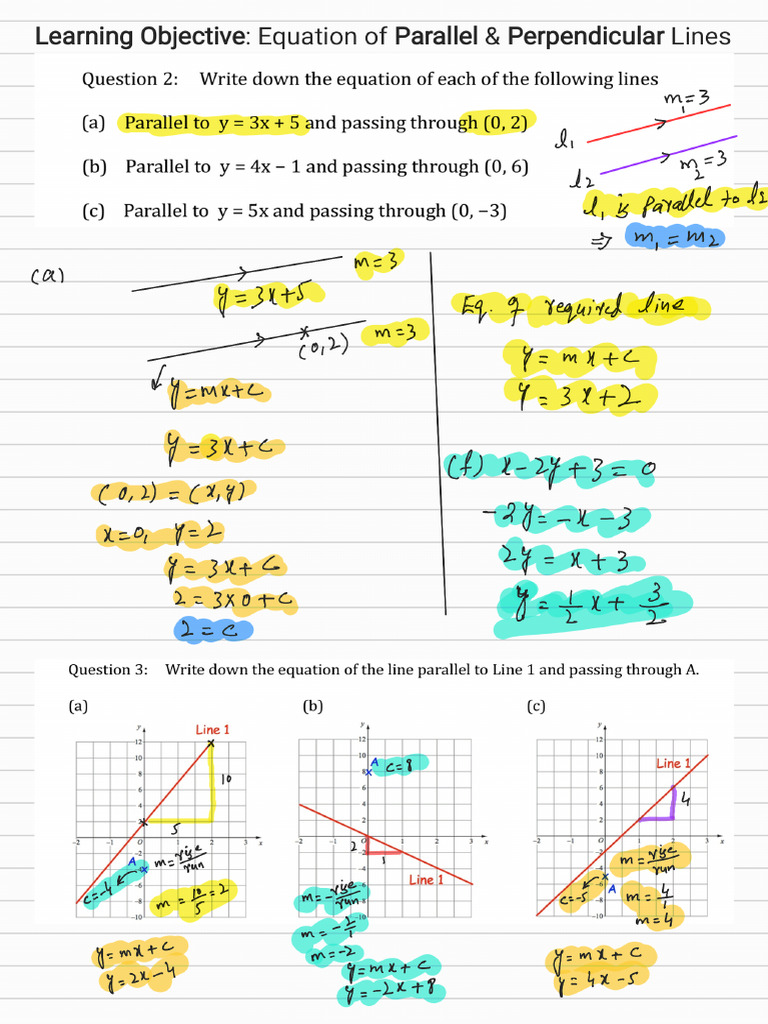 Learning Objective: Equation of Parallel & Perpendicular Lines
Question 2: Write down the equation of each of the following lines
(a) Parallel to y = 3x + 5 and passing through (0, 2)
(b) Parallel to y = 4x − 1 and passing through (0, 6)
(c) Parallel to y = 5x and passing through (0, −3)
m₁=3
l₁
m₂=3
l₂
l₁ is parallel to l₂
⇒ m₁ = m₂
(a)
m=3
y=3x+5
(0,2)
m=3
y=mx+c
y=3x+c
(0,2)=(x,y)
x=0, y=2
y=3x+c
2=3x0+c
2=c
Eq. of required line
y=mx+c
y=3x+2
(f) x-2y+3=0
-2y=-x-3
2y=x+3
y=1/2 x+3/2
Question 3: Write down the equation of the line parallel to Line 1 and passing through A.
(a)
Line 1
y
12
10
8
6
4
2
-2
-1
O
1
2
3
x
-2
-4
-6
-8
-10
10
5
A
c=-4
m=rise/run
m=10/5=2
y=mx+c
y=2x-4
(b)
y
12
10
8
6
4
2
-2
-1
O
1
2
3
x
-10
A
c=8
2
1
Line 1
m=-rise/run
m=-2/1
m=-2
y=mx+c
y=-2x+8
(c)
y
12
10
8
6
4
2
-2
-1
O
1
2
3
x
-2
-4
-8
-10
Line 1
4
A
c=-5
m=rise/run
m=4/1
m=4
y=mx+c
y=4x-5